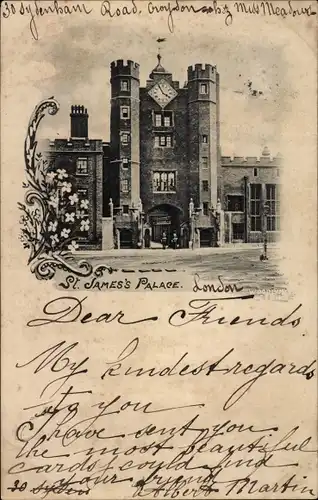 30 Sydenham Road, Croydon by Miss Meadows
St. James's Palace. London
Dear Friends
My kindest regards
to you
I have sent you
the most beautiful
cards I could find
your friend
30 Albert Martin